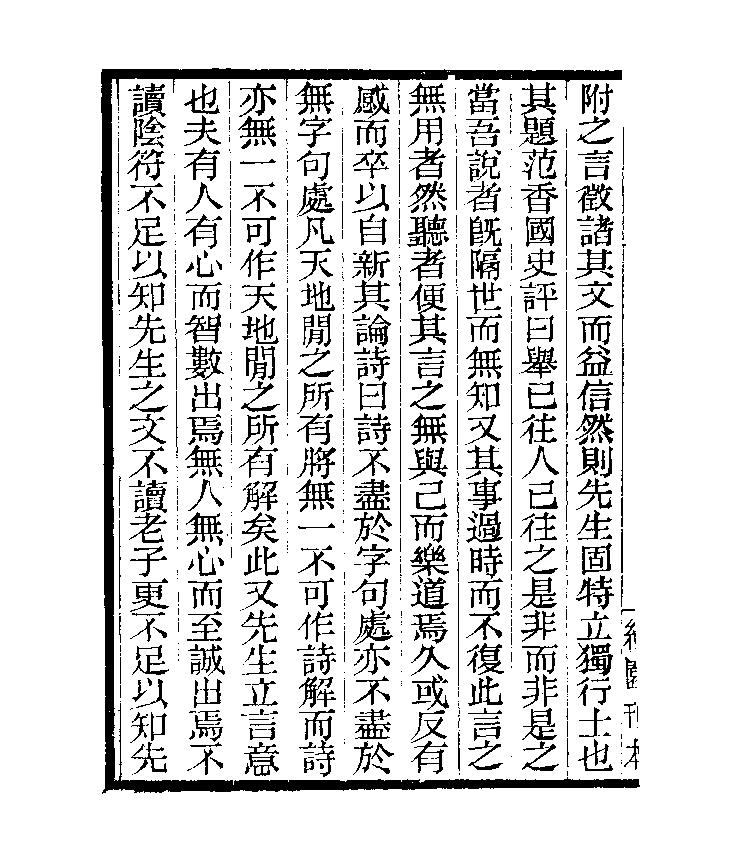 附之言徵諸其文而益信然則先生固特立獨行士也
其題范香國史評曰舉已往人已往之是非而非是之
當吾說者旣隔世而無知又其事過時而不復此言之
無用者然聽者便其言之無與己而樂道焉久或反有
感而卒以自新其論詩曰詩不盡於字句處亦不盡於
無字句處凡天地閒之所有將無一不可作詩解而詩
亦無一不可作天地閒之所有解矣此又先生立言意
也夫有人有心而智數出焉無人無心而至誠出焉不
讀陰符不足以知先生之文不讀老子更不足以知先
刊本